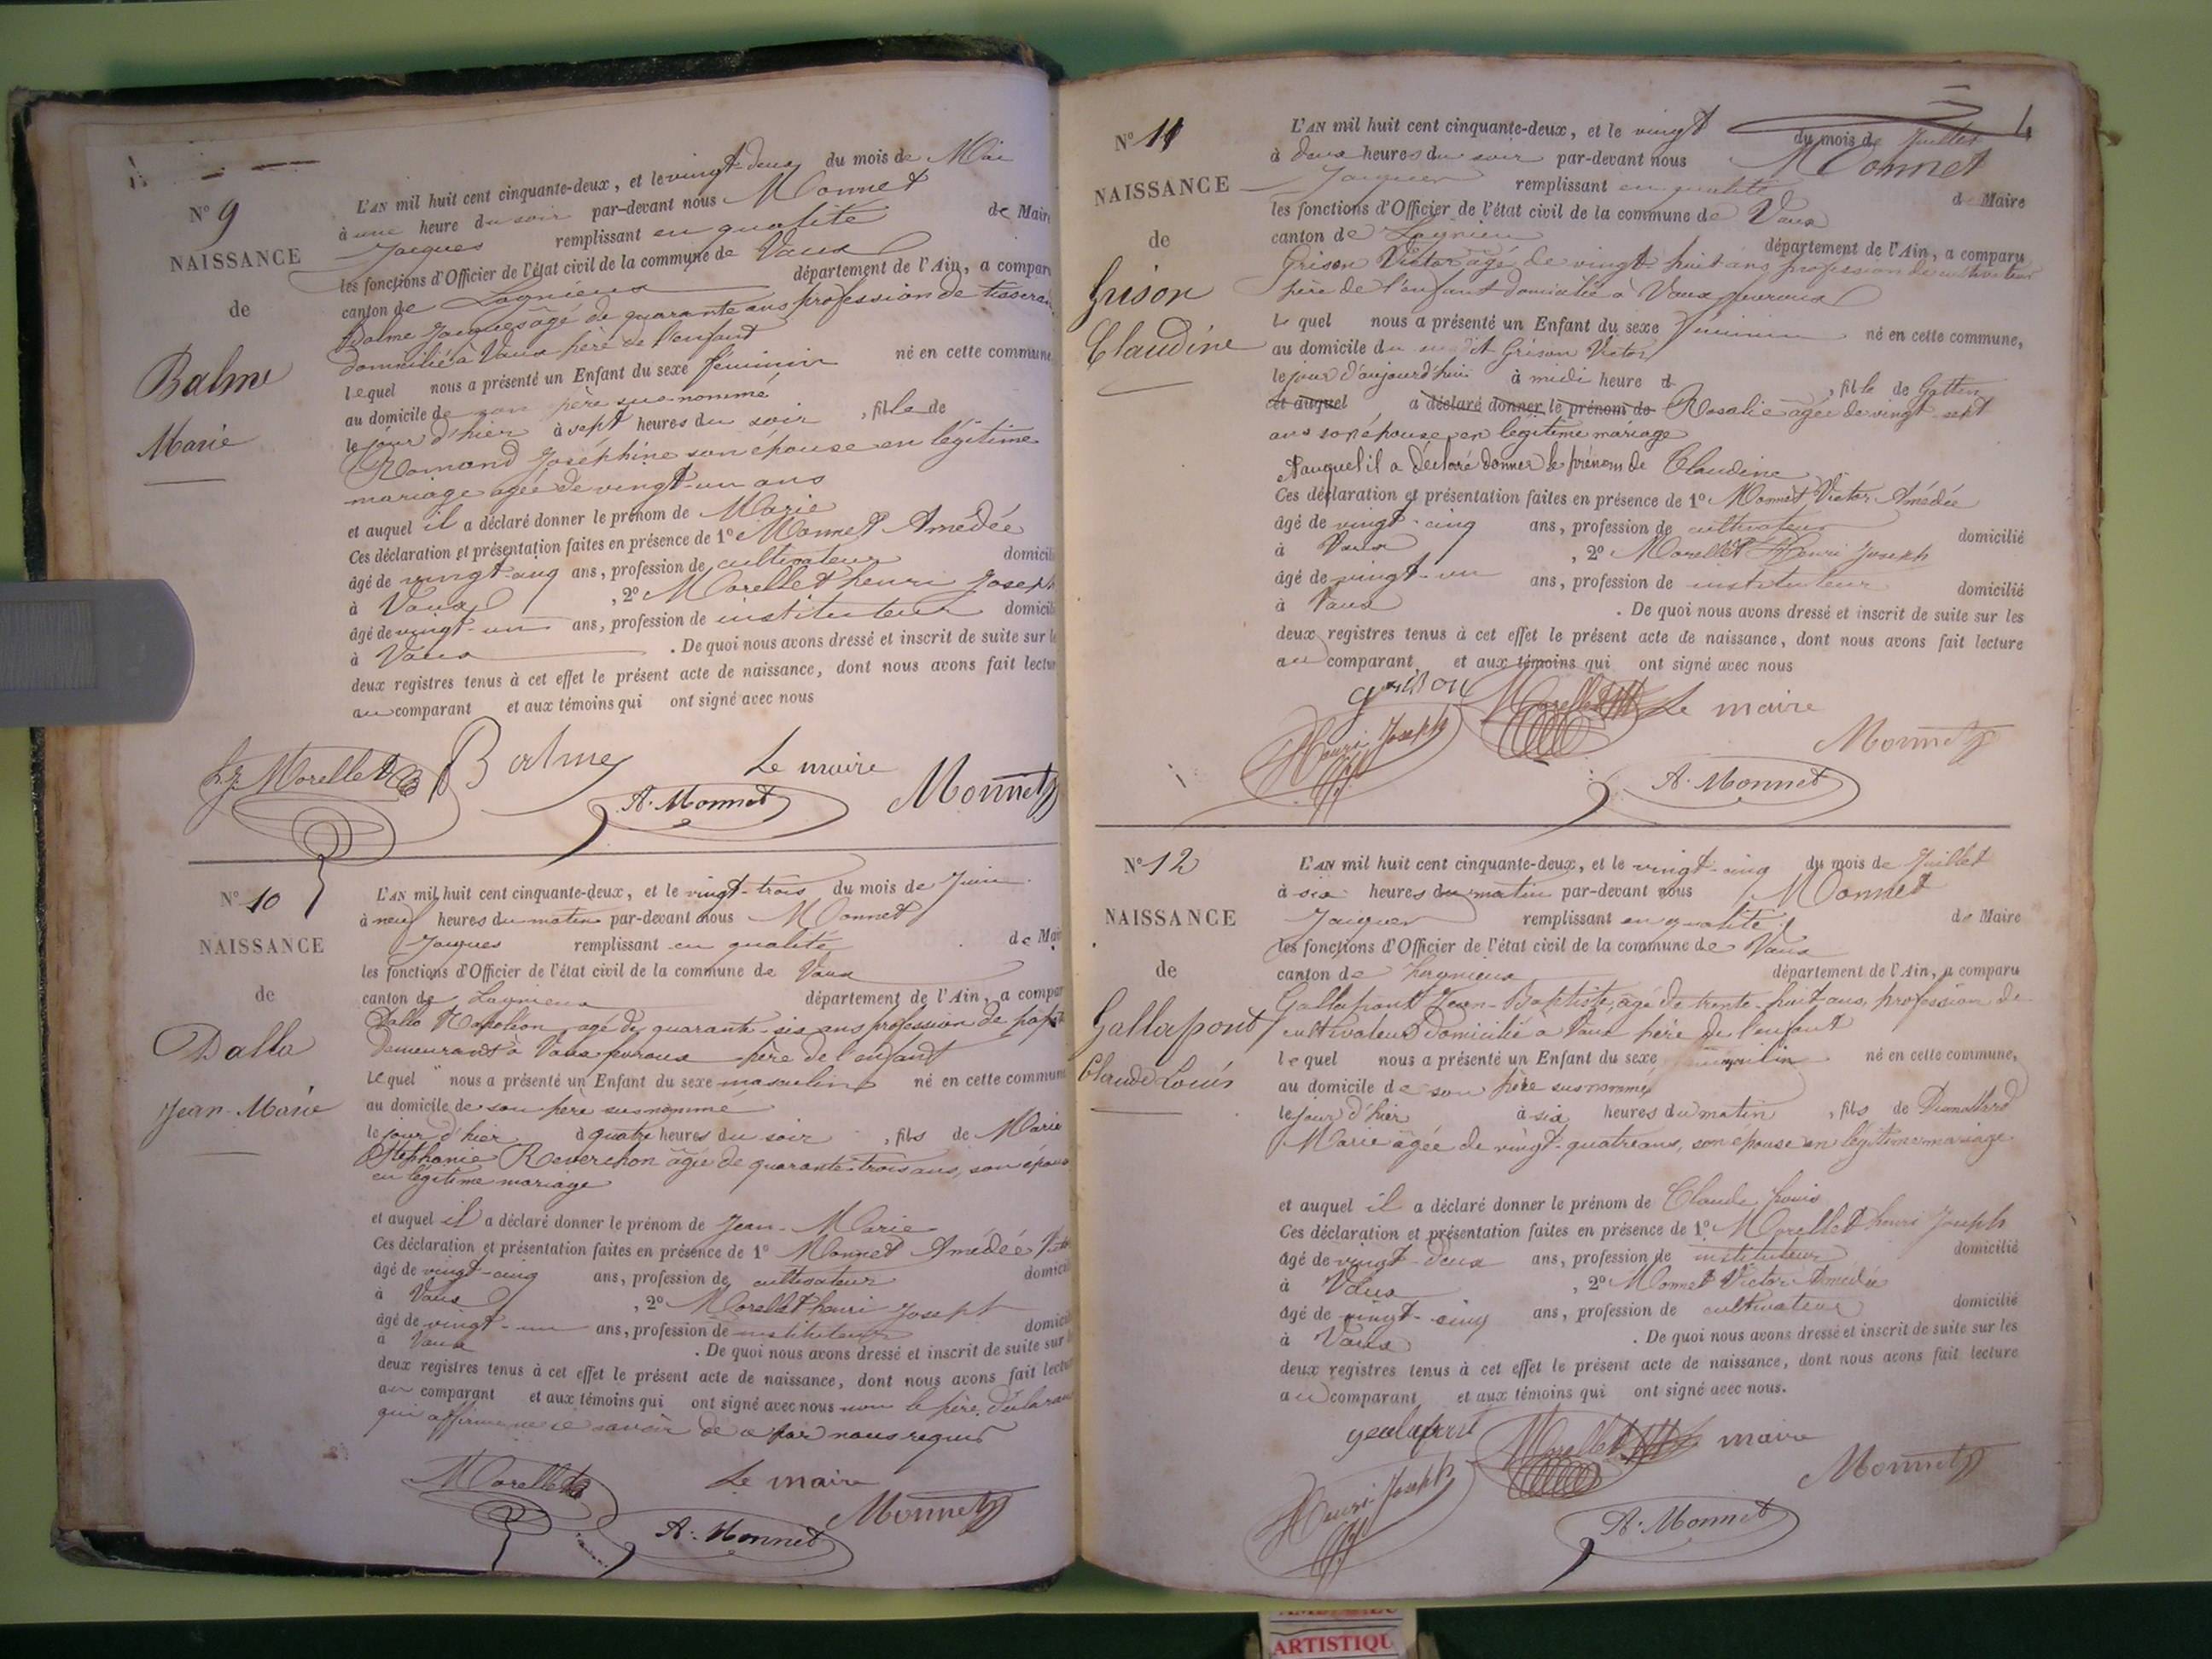 N° 9
NAISSANCE
de
Balme
Marie
L'AN mil huit cent cinquante-deux, et le vingt-deux du mois de Mai
à une heure du soir par-devant nous Monnet
Jacques remplissant en qualité de Maire
les fonctions d'Officier de l'état civil de la commune de Vaux
canton de Lagnieux département de l'Ain, a comparu
Balme Jacques âgé de quarante ans profession de tisserand
domicilié à Vaux père de l'enfant
lequel nous a présenté un Enfant du sexe féminin né en cette commune
au domicile de son père sus-nommé
le jour d'hier à sept heures du soir, fille de
Romand Joséphine son épouse en légitime
mariage agée de vingt-un ans
et auquel il a déclaré donner le prénom de Marie
Ces déclaration et présentation faites en présence de 1° Monnet Amédée
âgé de vingt-cinq ans, profession de cultivateur domicilié
à Vaux, 2° Morellet henri Joseph
âgé de vingt-un ans, profession de instituteur domicilié
à Vaux. De quoi nous avons dressé et inscrit de suite sur les
deux registres tenus à cet effet le présent acte de naissance, dont nous avons fait lecture
au comparant et aux témoins qui ont signé avec nous
Morellet Balme Le maire
A. Monnet Monnet
N° 10
NAISSANCE
de
Dallo
Jean-Marie
L'AN mil huit cent cinquante-deux, et le vingt-trois du mois de Juin
à neuf heures du matin par-devant nous Monnet
Jacques remplissant en qualité de Maire
les fonctions d'Officier de l'état civil de la commune de Vaux
canton de Lagnieux département de l'Ain, a comparu
Dallo Napoléon, agé de quarante-six ans profession de
Demeurant à Vaux père de l'enfant
Lequel nous a présenté un Enfant du sexe masculin né en cette commune
au domicile de son père susnommé
le jour d'hier à quatre heures du soir, fils de Marie
Stéphanie Reverchon âgée de quarante-trois ans, son épouse
en légitime mariage
et auquel il a déclaré donner le prénom de Jean-Marie
Ces déclaration et présentation faites en présence de 1° Monnet Amédée
âgé de vingt-cinq ans, profession de cultivateur domicilié
à Vaux, 2° Morellet henri Joseph
âgé de vingt-un ans, profession de instituteur domicilié
à Vaux. De quoi nous avons dressé et inscrit de suite sur les
deux registres tenus à cet effet le présent acte de naissance, dont nous avons fait lecture
au comparant et aux témoins qui ont signé avec nous non le père déclarant
qui affirme ne le savoir de ce par nous requis
Morellet Le maire
A. Monnet Monnet
4
N° 11
NAISSANCE
de
Grison
Claudine
L'AN mil huit cent cinquante-deux, et le vingt du mois de Juillet
à deux heures du soir par-devant nous Monnet
Jacques remplissant en qualité de Maire
les fonctions d'Officier de l'état civil de la commune de Vaux
canton de Lagnieu département de l'Ain, a comparu
Grison Victor agé de vingt-huit ans profession de cultivateur
père de l'enfant domicilié à Vaux
Le quel nous a présenté un Enfant du sexe féminin né en cette commune,
au domicile du su dit Grison Victor
le jour d'aujourd'hui à midi heure d, fille de Gattin
et auquel a déclaré donner le prénom de Rosalie agée de vingt-sept
ans son épouse en légitime mariage
auquel il a déclaré donner le prénom de Claudine
Ces déclaration et présentation faites en présence de 1° Monnet Victor Amédée
âgé de vingt-cinq ans, profession de cultivateur domicilié
à Vaux, 2° Morellet Henri Joseph
âgé de vingt-un ans, profession de instituteur domicilié
à Vaux. De quoi nous avons dressé et inscrit de suite sur les
deux registres tenus à cet effet le présent acte de naissance, dont nous avons fait lecture
au comparant et aux témoins qui ont signé avec nous
grison Morellet Le maire
Henri Joseph Monnet
A. Monnet
N° 12
NAISSANCE
de
Gallapont
Claude Louis
L'AN mil huit cent cinquante-deux, et le vingt-cinq du mois de Juillet
à six heures du matin par-devant nous Monnet
Jacques remplissant en qualité de Maire
les fonctions d'Officier de l'état civil de la commune de Vaux
canton de Lagnieux département de l'Ain, a comparu
Gallapont Jean-Baptiste, agé de trente-huit ans, profession de
cultivateur domicilié à Vaux père de l'enfant
lequel nous a présenté un Enfant du sexe masculin né en cette commune,
au domicile de son père susnommé
le jour d'hier à six heures du matin, fils de
Marie âgée de vingt-quatre ans, son épouse en légitime mariage
et auquel il a déclaré donner le prénom de Claude Louis
Ces déclaration et présentation faites en présence de 1° Morellet henri Joseph
âgé de vingt-deux ans, profession de instituteur domicilié
à Vaux, 2° Monnet Victor Amédée
âgé de vingt-cinq ans, profession de cultivateur domicilié
à Vaux. De quoi nous avons dressé et inscrit de suite sur les
deux registres tenus à cet effet le présent acte de naissance, dont nous avons fait lecture
au comparant et aux témoins qui ont signé avec nous.
Morellet Le maire
Henri Joseph Monnet
A. Monnet
ARTISTIQU